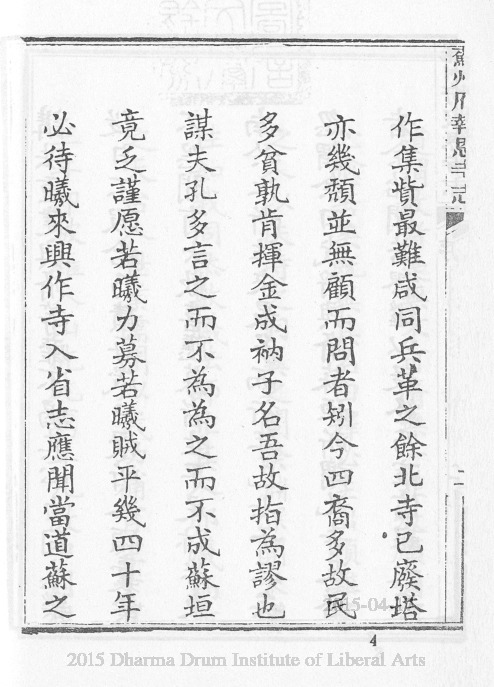 作集貲最難咸同兵革之餘北寺已廢塔
亦幾頹並無顧而問者矧今四裔多故民
多貧孰肯揮金成衲子名吾故指為謬也
謀夫孔多言之而不為為之而不成蘇垣
竟乏謹愿若曦力募若曦賊平幾四十年
必待曦來興作寺入省志應聞當道蘇之
4
2015 Dharma Drum Institute of Liberal Arts